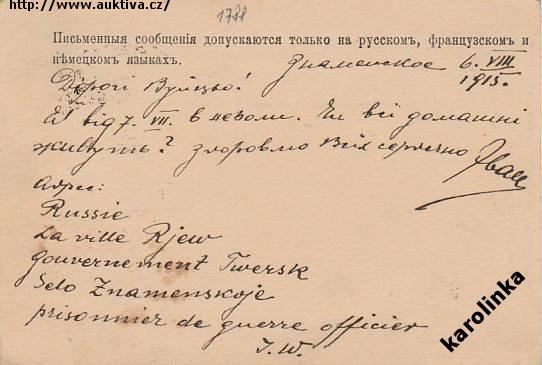 http://www.auktiva.cz/
1788
Письменныя сообщенія допускаются только на русскомъ, французскомъ и
нѣмецкомъ языкахъ.
Знаменское 6. VIII
1915.
Дорогі Вуйцьо!
Є від 7. VII. в неволи. Чи всі домашні
живуть? Здоровлю Всіх сердечно Іван
Адрес:
Russie
La ville Rjew
gouvernement Twersk
Selo Znamenskoje
prisonnier de guerre officier
I. W.
karolinka